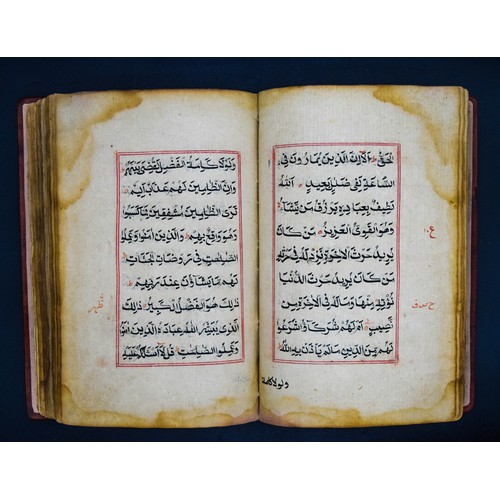 الحق الا ان الذين يمارون في
الساعة لفي ضلل بعيد الله
لطيف بعباده يرزق من يشاء
وهو القوي العزيز من كان
يريد حرث الاخرة نزد له في حرثه
من كان يريد حرث الدنيا
نؤته منها وما له في الاخرة من
نصيب ام لهم شركاؤا شرعوا
لهم من الدين ما لم ياذن به الله
ولولا كلمة
ولولا كلمة الفصل لقضي بينهم
وان الظلمين لهم عذاب اليم
ترى الظلمين مشفقين مما كسبوا
وهو واقع بهم والذين امنوا وعملوا
الصلحت في روضات الجنات
لهم ما يشاؤن عند ربهم
ذلك هو الفضل الكبير ذلك
الذي يبشر الله عباده الذين امنوا
وعملوا الصلحت قل لا اسئلكم عليه